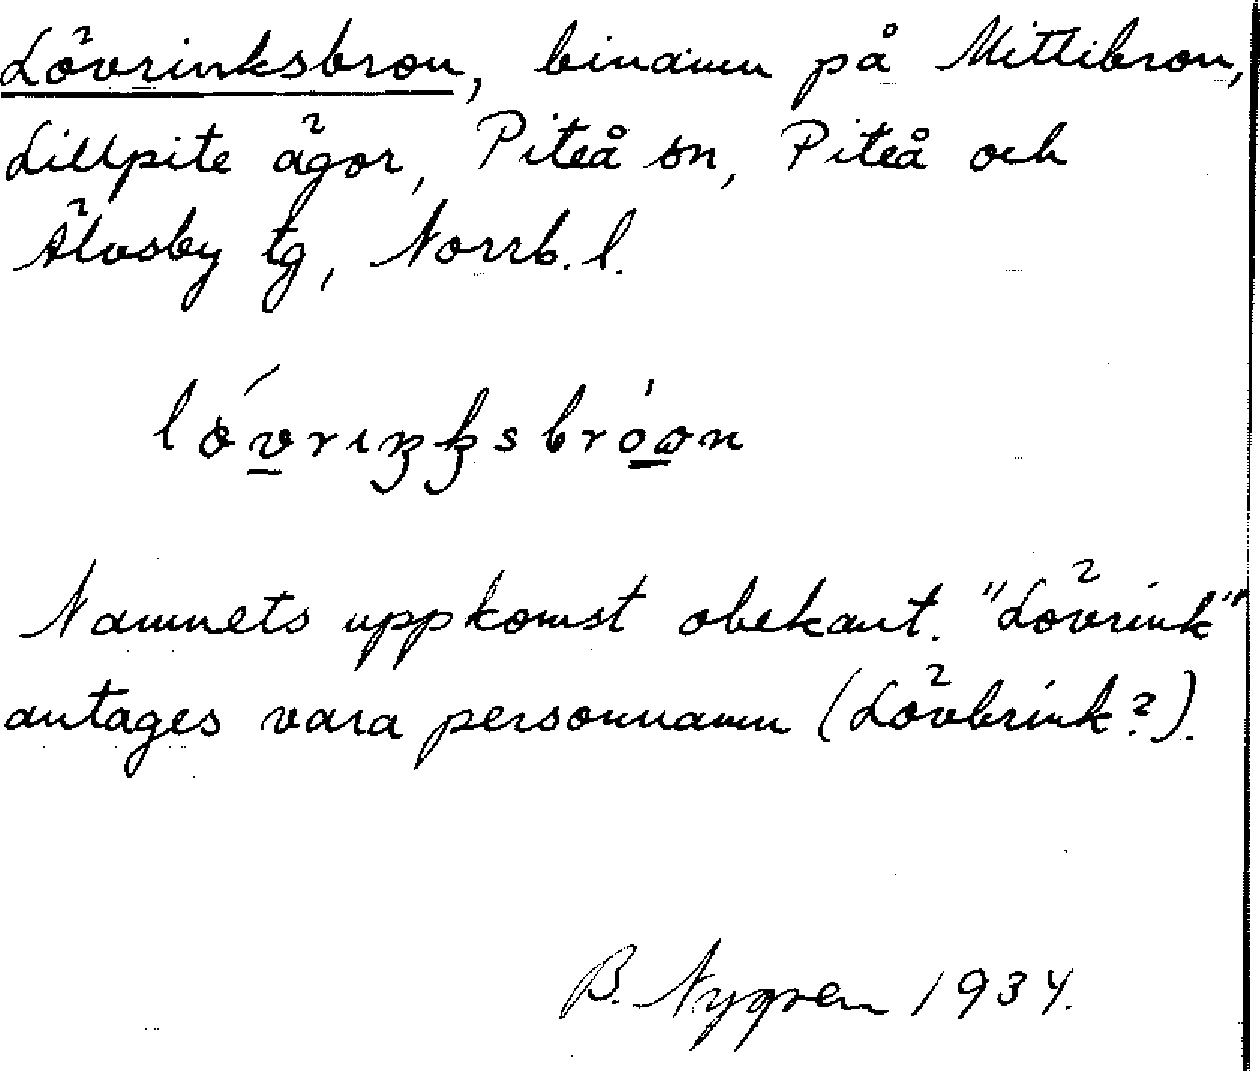 Lövrinksbron, binamn på Mittibron,
Lillpite ägor, Piteå sn, Piteå och
Älvsby tg, Norrb. l.
Namnets uppkomst obekant. "Lövrink"
antages vara personnamn (Lövbrink?).
B. Nygren 1934.